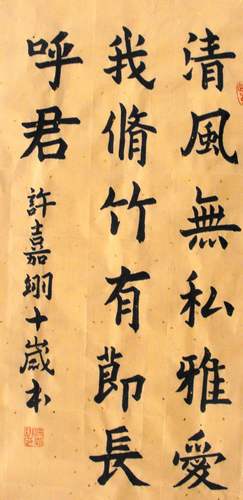 清風無私雅愛
我脩竹有節長
呼君
許嘉翊十歲书